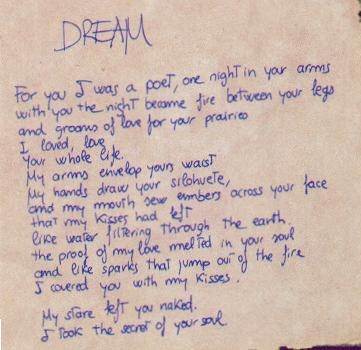 DREAM
For you I was a poet, one night in your arms
with you the night became fire between your legs
and grooms of love for your prairies
I loved, love
your whole life.
My arms envelop yours waist
My hands draw your silohuete,
and my mouth sew embers across your face
that my kisses had left
like water filtering through the earth.
the proof of my love melted in your soul
and like sparks that jump out of the fire
I covered you with my kisses.
My stare left you naked.
I took the secret of your soul